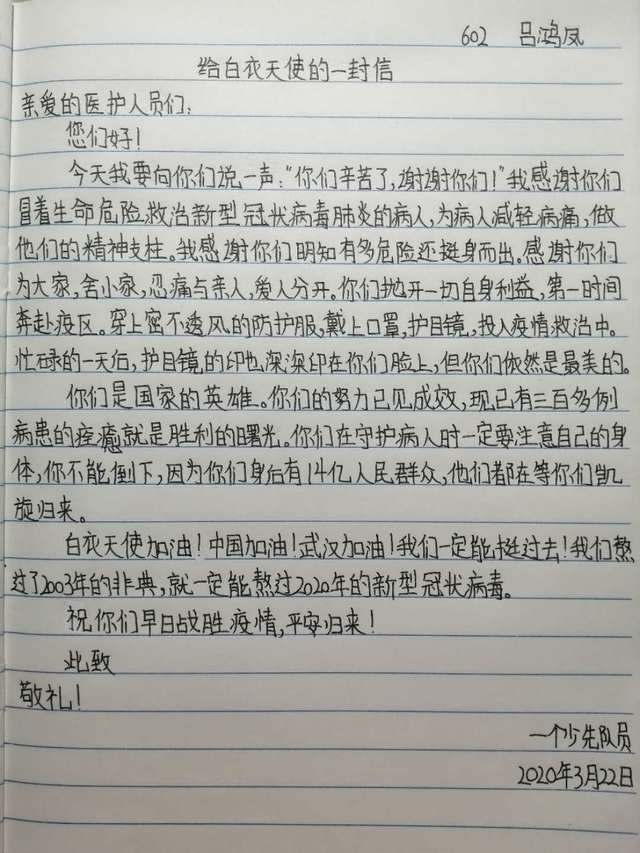 602 吕鸿凤
给白衣天使的一封信
亲爱的医护人员们:
您们好!
今天我要向你们说一声:“你们辛苦了,谢谢你们!”我感谢你们
冒着生命危险救治新型冠状病毒肺炎的病人,为病人减轻病痛,做
他们的精神支柱。我感谢你们明知有多危险还挺身而出。感谢你们
为大家,舍小家,忍痛与亲人,爱人分开。你们抛开一切自身利益,第一时间
奔赴疫区。穿上密不透风的防护服,戴上口罩,护目镜,投入疫情救治中。
忙碌的一天后,护目镜的印也深深印在你们脸上,但你们依然是最美的。
你们是国家的英雄。你们的努力已见成效,现已有三百多例
病患的痊愈就是胜利的曙光。你们在守护病人时一定要注意自己的身
体,你不能倒下,因为你们身后有14亿人民群众,他们都在等你们凯
旋归来。
白衣天使加油!中国加油!武汉加油!我们一定能挺过去!我们熬
过了2003年的非典,就一定能熬过2020年的新型冠状病毒。
祝你们早日战胜疫情,平安归来!
此致
敬礼!
一个少先队员
2020年3月22日